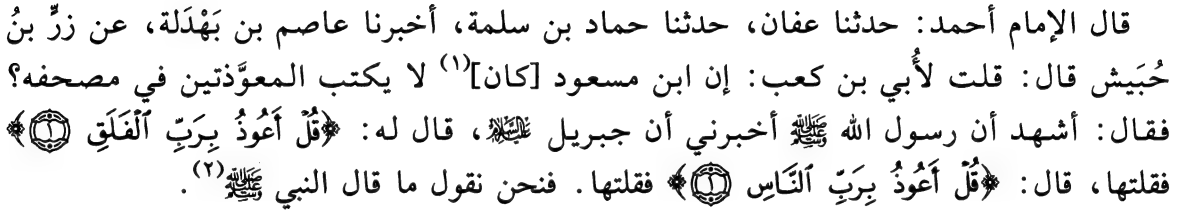 قال الإمام أحمد: حدثنا عفان، حدثنا حماد بن سلمة، أخبرنا عاصم بن بَهْدَلة، عن زرٍّ بنُ
حُبَيش قال: قلت لأُبي بن كعب: إن ابن مسعود [كان]⁽١⁾ لا يكتب المعوَّذتين في مصحفه؟
فقال: أشهد أن رسول الله ﷺ أخبرني أن جبريل عليه السلام، قال له: ﴿قُلْ أَعُوذُ بِرَبِّ ٱلْفَلَقِ ١﴾
فقلتها، قال: ﴿قُلْ أَعُوذُ بِرَبِّ ٱلنَّاسِ ١﴾ فقلتها. فنحن نقول ما قال النبي ﷺ⁽٢⁾.